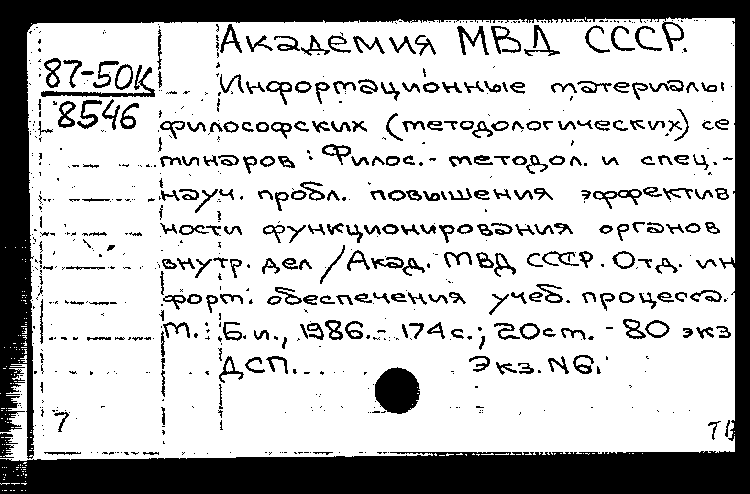 Академия МВД СССР.
87-50К
8546
Информационные материалы
философских (методологических) се
минаров: Филос.- методол. и спец.-
науч. пробл. повышения эффектив
ности функционирования органов
внутр. дел / Акад. МВД СССР. Отд. ин
форм. обеспечения учеб. процесса.
М.: Б.и., 1986.- 174с.; 20см. - 80 экз
ДСП. Экз. N6.
7